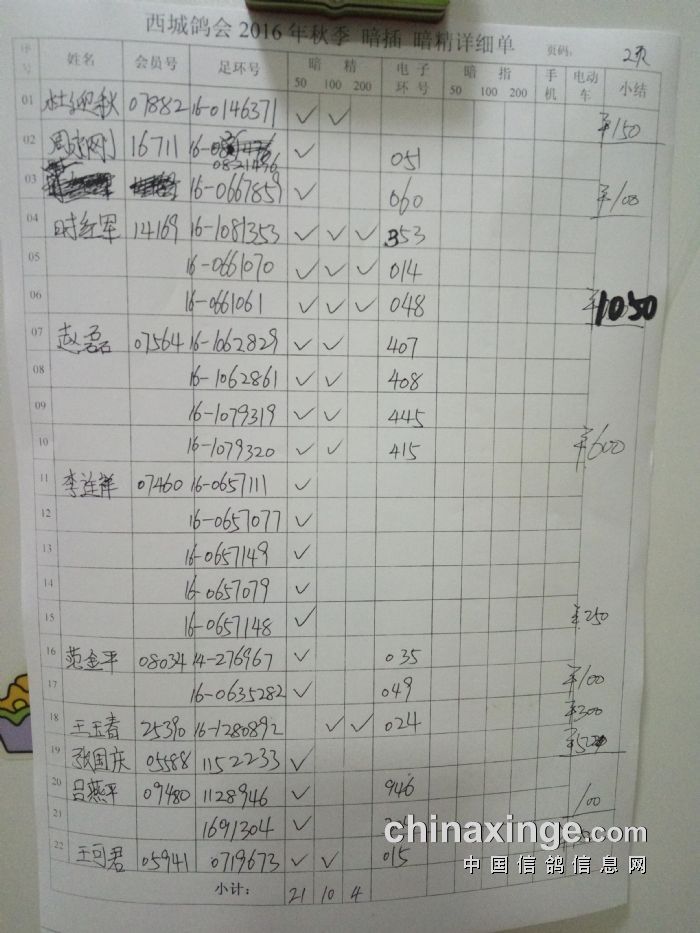 西城鸽会2016年秋季 暗插 暗精详细单
页码: 2页
序号 姓名 会员号 足环号 暗 精 50 100 200 电子环号 暗 指 50 100 200 手机 电动车 小结
01 杜迎秋 07882 16-0146371 ✓ ✓ ¥150
02 周永刚 16711 16-0821436 ✓ 051
03 16-0667859 ✓ 060 ¥100
04 时红军 14169 16-1081353 ✓ ✓ ✓ 353
05 16-0661070 ✓ ✓ ✓ 014
06 16-0661061 ✓ ✓ ✓ 048 ¥1050
07 赵磊 07564 16-1062829 ✓ ✓ 407
08 16-1062861 ✓ ✓ 408
09 16-1079319 ✓ ✓ 445
10 16-1079320 ✓ ✓ 415 ¥600
11 李连祥 07460 16-0657111 ✓
12 16-0657077 ✓
13 16-0657149 ✓
14 16-0657079 ✓
15 16-0657148 ✓ ¥250
16 范金平 08034 14-276967 ✓ 035
17 16-0635282 ✓ 049 ¥100
18 王玉春 25390 16-1280892 ✓ ✓ 024 ¥300
19 张国庆 05588 1152233 ✓
20 吕燕平 09480 1128946 ✓ 946
21 1691304 ✓ 100
22 王可君 05941 0719673 ✓ ✓ 015
小计: 21 10 4
chinaxinge.com
中国信鸽信息网